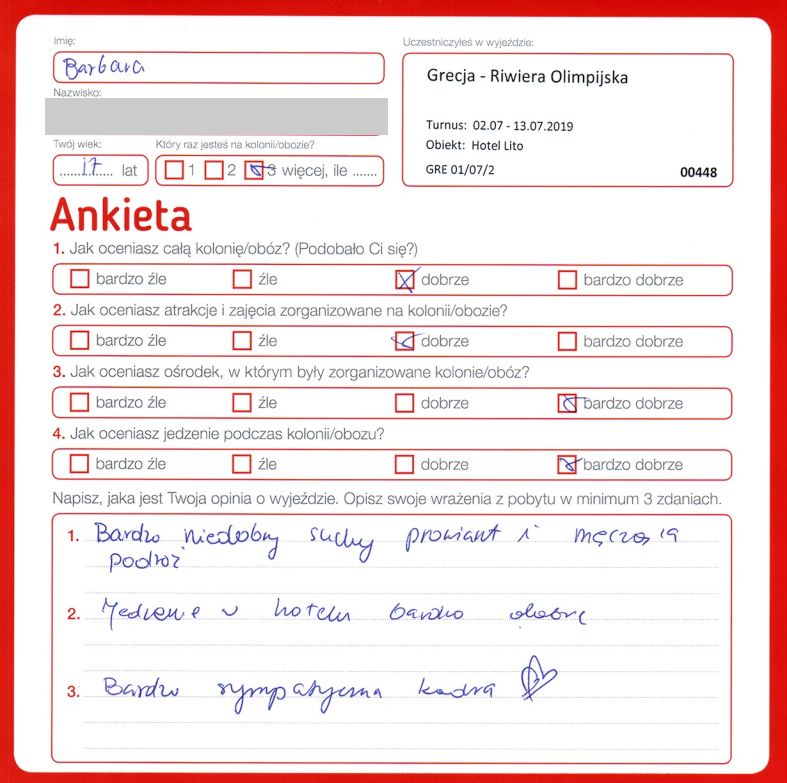 Imię:
Barbara
Uczestniczyłeś w wyjeździe:
Grecja - Riwiera Olimpijska
Turnus: 02.07 - 13.07.2019
Obiekt: Hotel Lito
GRE 01/07/2 00448
Nazwisko:
Twój wiek: Który raz jesteś na kolonii/obozie?
17 lat 1 2 3 więcej, ile .......
Ankieta
1. Jak oceniasz całą kolonię/obóz? (Podobało Ci się?)
bardzo źle źle dobrze bardzo dobrze
2. Jak oceniasz atrakcje i zajęcia zorganizowane na kolonii/obozie?
bardzo źle źle dobrze bardzo dobrze
3. Jak oceniasz ośrodek, w którym były zorganizowane kolonie/obóz?
bardzo źle źle dobrze bardzo dobrze
4. Jak oceniasz jedzenie podczas kolonii/obozu?
bardzo źle źle dobrze bardzo dobrze
Napisz, jaka jest Twoja opinia o wyjeździe. Opisz swoje wrażenia z pobytu w minimum 3 zdaniach.
1. Bardzo niedobry suchy prowiant i męcząca
podróż
2. Jedzenie w hotelu bardzo dobre
3. Bardzo sympatyczna kadra